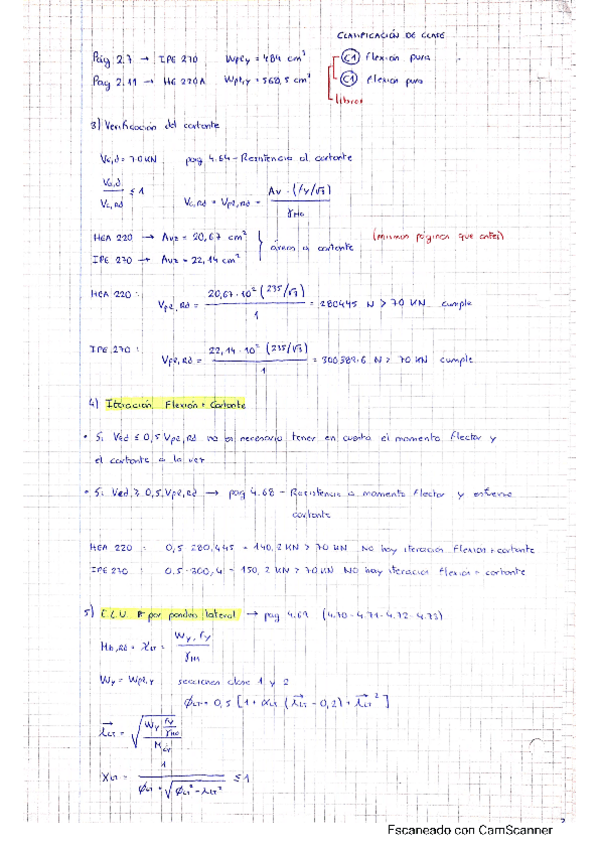 CLASIFICACIÓN DE CLASE
Pág 2.7 → IPE 270 Wpl,y = 484 cm³ C1 flexion pura
Pag 2.11 → HE 220A Wpl,y = 568,5 cm³ C1 flexion pura
libros
3) Verificación del cortante
Vc,d = 70KN pag 4.64 - Resistencia al cortante
Vc,d / Vc,Rd ≤ 1 Vc,Rd = Vpl,Rd = Av · (fy/√3) / γM0
HEA 220 → Avz = 20,67 cm² (mismas páginas que antes)
IPE 270 → Avz = 22,14 cm² } áreas a cortante
HEA 220: Vpl,Rd = 20,67·10² (235/√3) / 1 = 280445 N > 70 KN cumple
IPE 270: Vpl,Rd = 22,14·10² (235/√3) / 1 = 300389.6 N > 70 KN cumple
4) Iteración Flexión + Cortante
• Si Ved ≤ 0,5 Vpl,Rd no es necesario tener en cuenta el momento flector y
el cortante a la vez
• Si Ved ≥ 0,5 Vpl,Rd → pag 4.68 - Resistencia a momento flector y esfuerzo
cortante
HEA 220 : 0,5 · 280,445 = 140,2 KN > 70 KN NO hay iteracion flexion + cortante
IPE 270 : 0.5 · 300,4 = 150,2 KN > 70 KN NO hay iteracion flexion + cortante
5) E.L.U. por pandeo lateral → pag 4.69 (4.70 - 4.71 - 4.72 - 4.73)
Mb,Rd = χLT = Wy · fy / γM1
Wy = Wpl,y secciones clase 1 y 2
ϕLT = 0,5 [1 + αLT (λLT - 0,2) + λLT²]
λLT = √(Wy fy/γM0 / Mcr)
χLT = 1 / (ϕLT + √(ϕLT² - λLT²)) ≤ 1
Escaneado con CamScanner